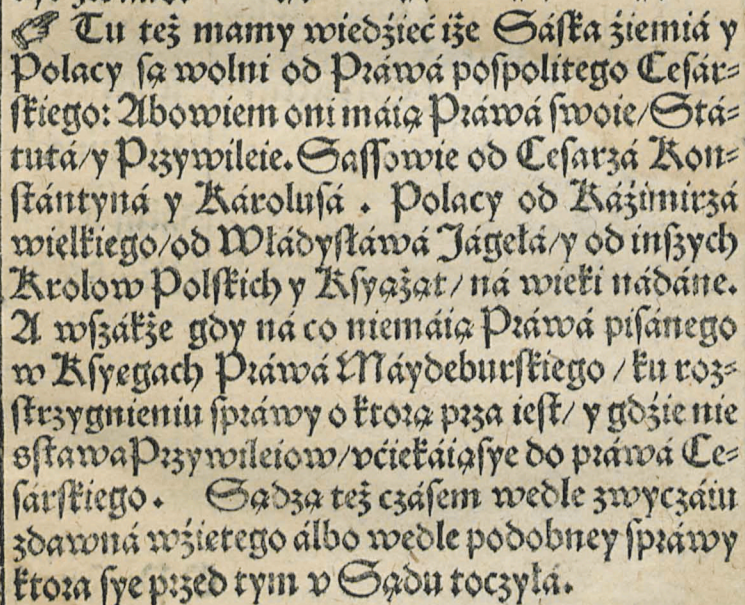 ☞ Tu też mamy wiedźieć iże Sáska źiemiá y
Polacy są wolni od Práwá pospolitego Cesár⸗
skiego: Abowiem oni máią Práwá swoie/Stá⸗
tutá/y Przywileie. Sassowie od Cesarzá Kon⸗
stántyná y Károlusá . Polacy od Káźimirzá
wielkiego/od Włádysłáwá Jágełá/y od inszych
Krolow Polskich y Ksyążąt/ ná wieki nádáne.
A wszákże gdy ná co niemáią Práwá pisánego
w Ksyegach Práwá Máydeburskiego / ku roz⸗
strzygnieniu spráwy o ktorą prza iest/ y gdźie nie
sstawa Przywileiow/vćiekáią sye do práwá Ce⸗
sárskiego . Sądzą też czásem wedle zwyczáiu
zdawná wźietego álbo wedle podobney spráwy
ktora sye przed tym v Sądu toczyłá.